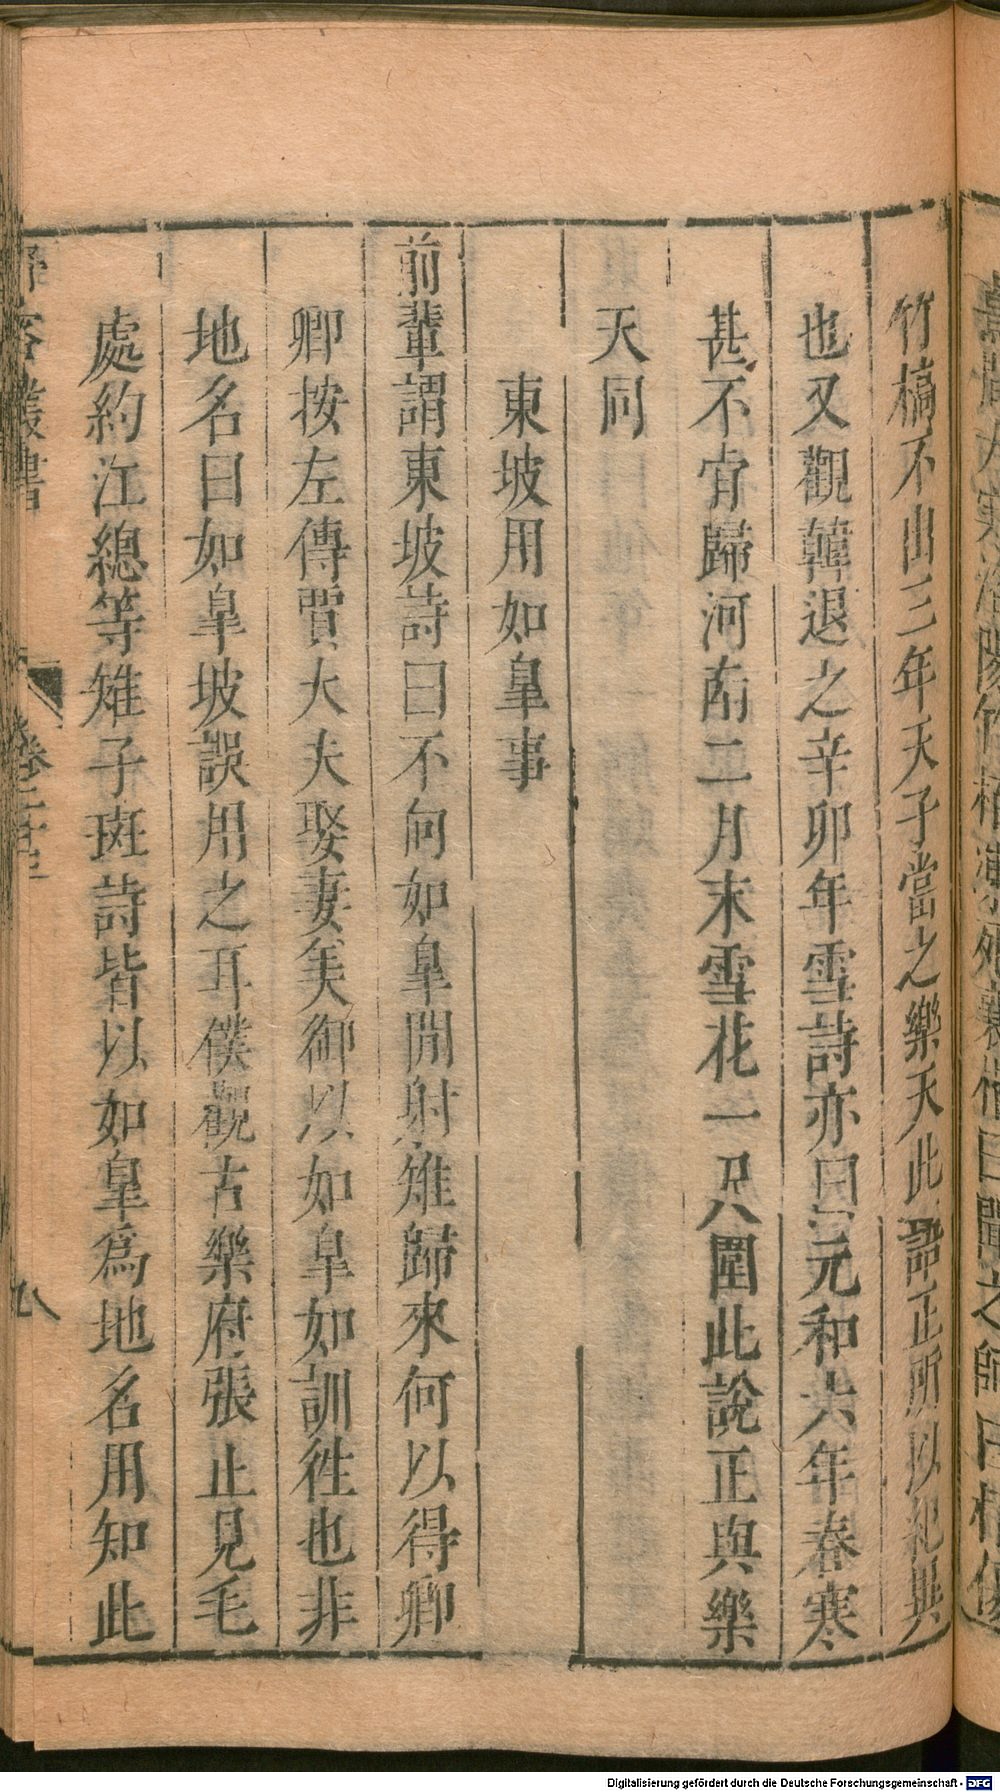 竹槁不出三年天子當之樂天此語正所以紀異
也又觀韓退之辛卯年雪詩亦曰元和六年春寒
甚不肯歸河南二月末雪花一尺圍此說正與樂
天同
東坡用如皐事
前輩謂東坡詩曰不向如皐閒射雉歸來何以得卿
卿按左傳賈大夫娶妻美御以如皐如訓徃也非
地名曰如皐坡誤用之耳僕觀古樂府張正見毛
處約江總等雉子斑詩皆以如皐爲地名用知此
客叢書
卷二十
九
Digitalisierung gefördert durch die Deutsche Forschungsgemeinschaft - DFG